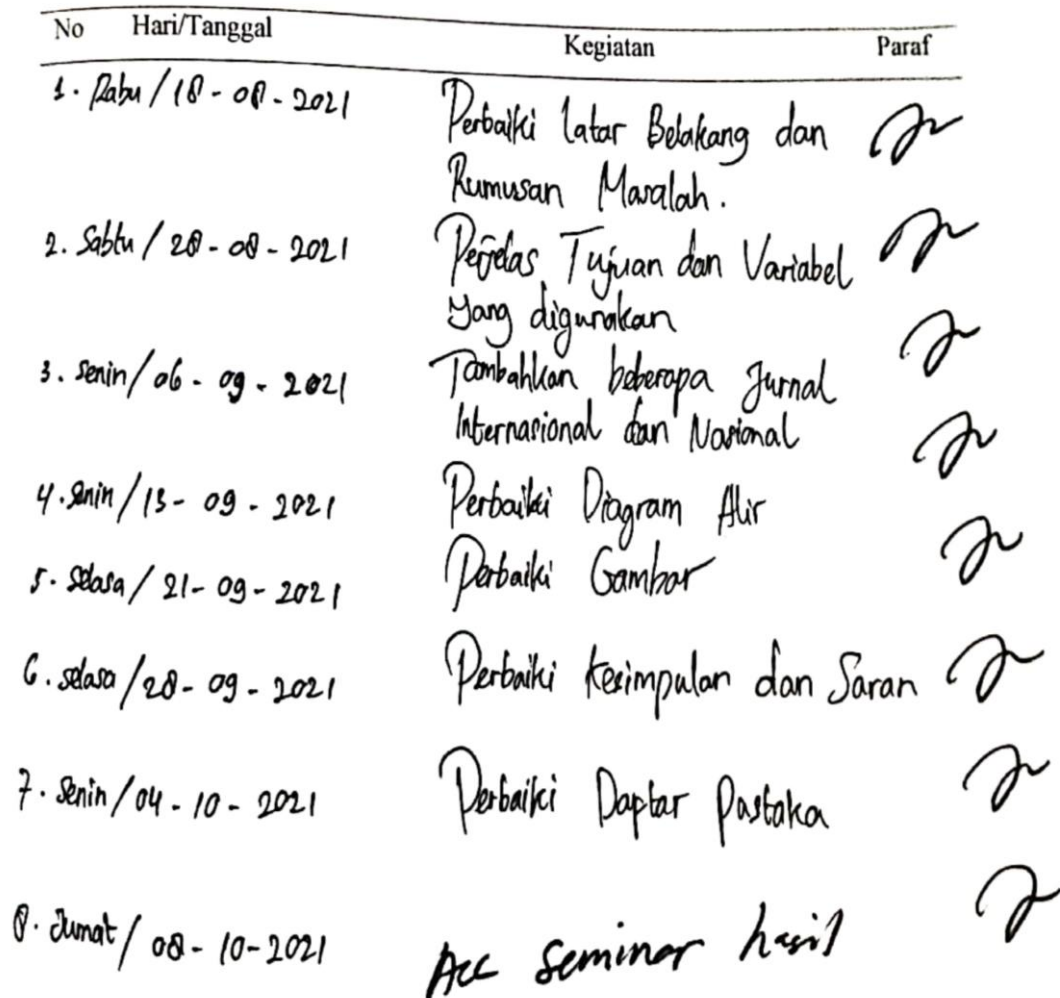 No Hari/Tanggal Kegiatan Paraf
1. Rabu / 18 - 08 - 2021 Perbaiki Latar Belakang dan
Rumusan Masalah.
2. Sabtu / 28 - 08 - 2021 Perjelas Tujuan dan Variabel
yang digunakan
3. Senin / 06 - 09 - 2021 Tambahkan beberapa Jurnal
Internasional dan Nasional
4. Senin / 13 - 09 - 2021 Perbaiki Diagram Alir
5. Selasa / 21 - 09 - 2021 Perbaiki Gambar
6. Selasa / 28 - 09 - 2021 Perbaiki Kesimpulan dan Saran
7. Senin / 04 - 10 - 2021 Perbaiki Daptar Pustaka
8. Jumat / 08 - 10 - 2021 Acc seminar hasil